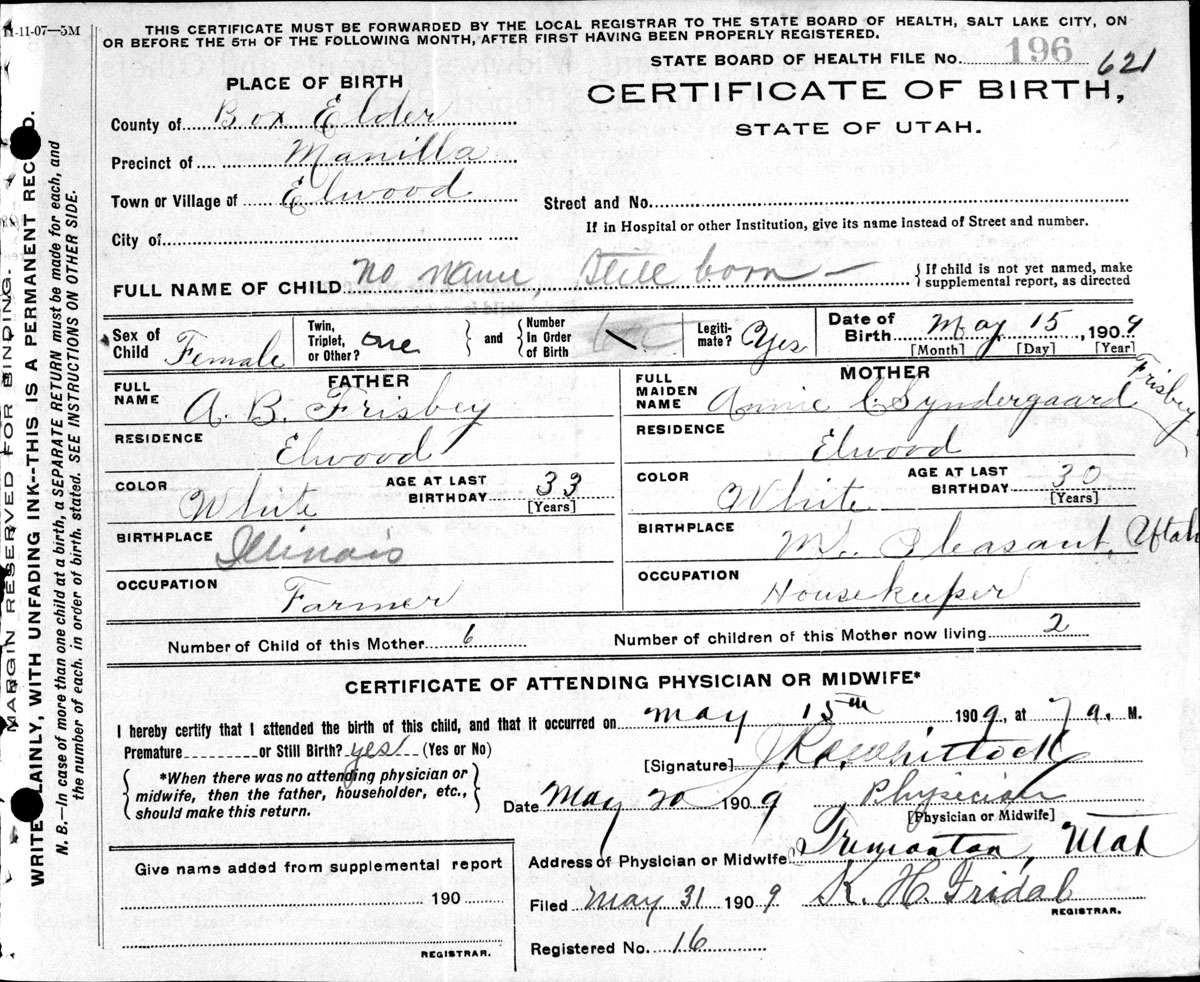 11-11-07—5M
THIS CERTIFICATE MUST BE FORWARDED BY THE LOCAL REGISTRAR TO THE STATE BOARD OF HEALTH, SALT LAKE CITY, ON
OR BEFORE THE 5TH OF THE FOLLOWING MONTH, AFTER FIRST HAVING BEEN PROPERLY REGISTERED.
STATE BOARD OF HEALTH FILE No. 196 621
PLACE OF BIRTH
CERTIFICATE OF BIRTH,
STATE OF UTAH.
County of Box Elder
Precinct of Manilla
Town or Village of Elwood
Street and No.
If in Hospital or other Institution, give its name instead of Street and number.
City of
FULL NAME OF CHILD no name, Still born —
If child is not yet named, make
supplemental report, as directed
Sex of Child Female
Twin, Triplet, or Other? one
and
Number In Order of Birth
Legiti-mate? Yes
Date of Birth May 15, 1909
[Month] [Day] [Year]
FATHER
FULL NAME A. B. Frisbey
RESIDENCE Elwood
COLOR White
AGE AT LAST BIRTHDAY 33
[Years]
BIRTHPLACE Illinois
OCCUPATION Farmer
MOTHER
FULL MAIDEN NAME Annie C Syndergaard Frisbey
RESIDENCE Elwood
COLOR White
AGE AT LAST BIRTHDAY 30
[Years]
BIRTHPLACE Mt. Pleasant, Utah
OCCUPATION Housekeeper
Number of Child of this Mother 6
Number of children of this Mother now living 2
CERTIFICATE OF ATTENDING PHYSICIAN OR MIDWIFE*
I hereby certify that I attended the birth of this child, and that it occurred on May 15th 1909, at 7 a. M.
Premature or Still Birth? yes (Yes or No)
[Signature] Whittock
*When there was no attending physician or
midwife, then the father, householder, etc.,
should make this return.
Date May 20 1909
Physician
[Physician or Midwife]
Address of Physician or Midwife Tremonton, Utah
Give name added from supplemental report
190
REGISTRAR.
Filed May 31 1909 K. H. Fridal
REGISTRAR.
Registered No. 16
MARGIN RESERVED FOR BINDING.
WRITE PLAINLY, WITH UNFADING INK--THIS IS A PERMANENT RECORD.
N. B.—In case of more than one child at a birth, a SEPARATE RETURN must be made for each, and
the number of each, in order of birth, stated. SEE INSTRUCTIONS ON OTHER SIDE.